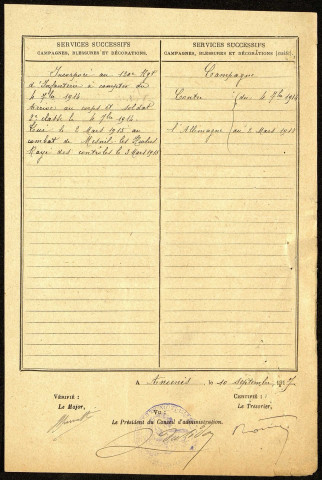 SERVICES SUCCESSIFS
CAMPAGNES, BLESSURES ET DÉCORATIONS.
Incorporé au 120e Rgt
d'Infanterie à compter du
4 7bre 1914
Arrivé au corps et soldat
2e classe le 4 7bre 1914
Tué le 2 Mars 1915 au
combat de Mesnil les Hurlus
Rayé des contrôles le 3 Mars 1915
SERVICES SUCCESSIFS
CAMPAGNES, BLESSURES ET DÉCORATIONS (suite).
Campagne
Contre du 4 7bre 1914
l'Allemagne au 2 Mars 1915
A Ancenis, le 10 septembre 1917
VÉRIFIÉ :
Le Major,
VU :
Le Président du Conseil d'administration,
CERTIFIÉ :
Le Trésorier,